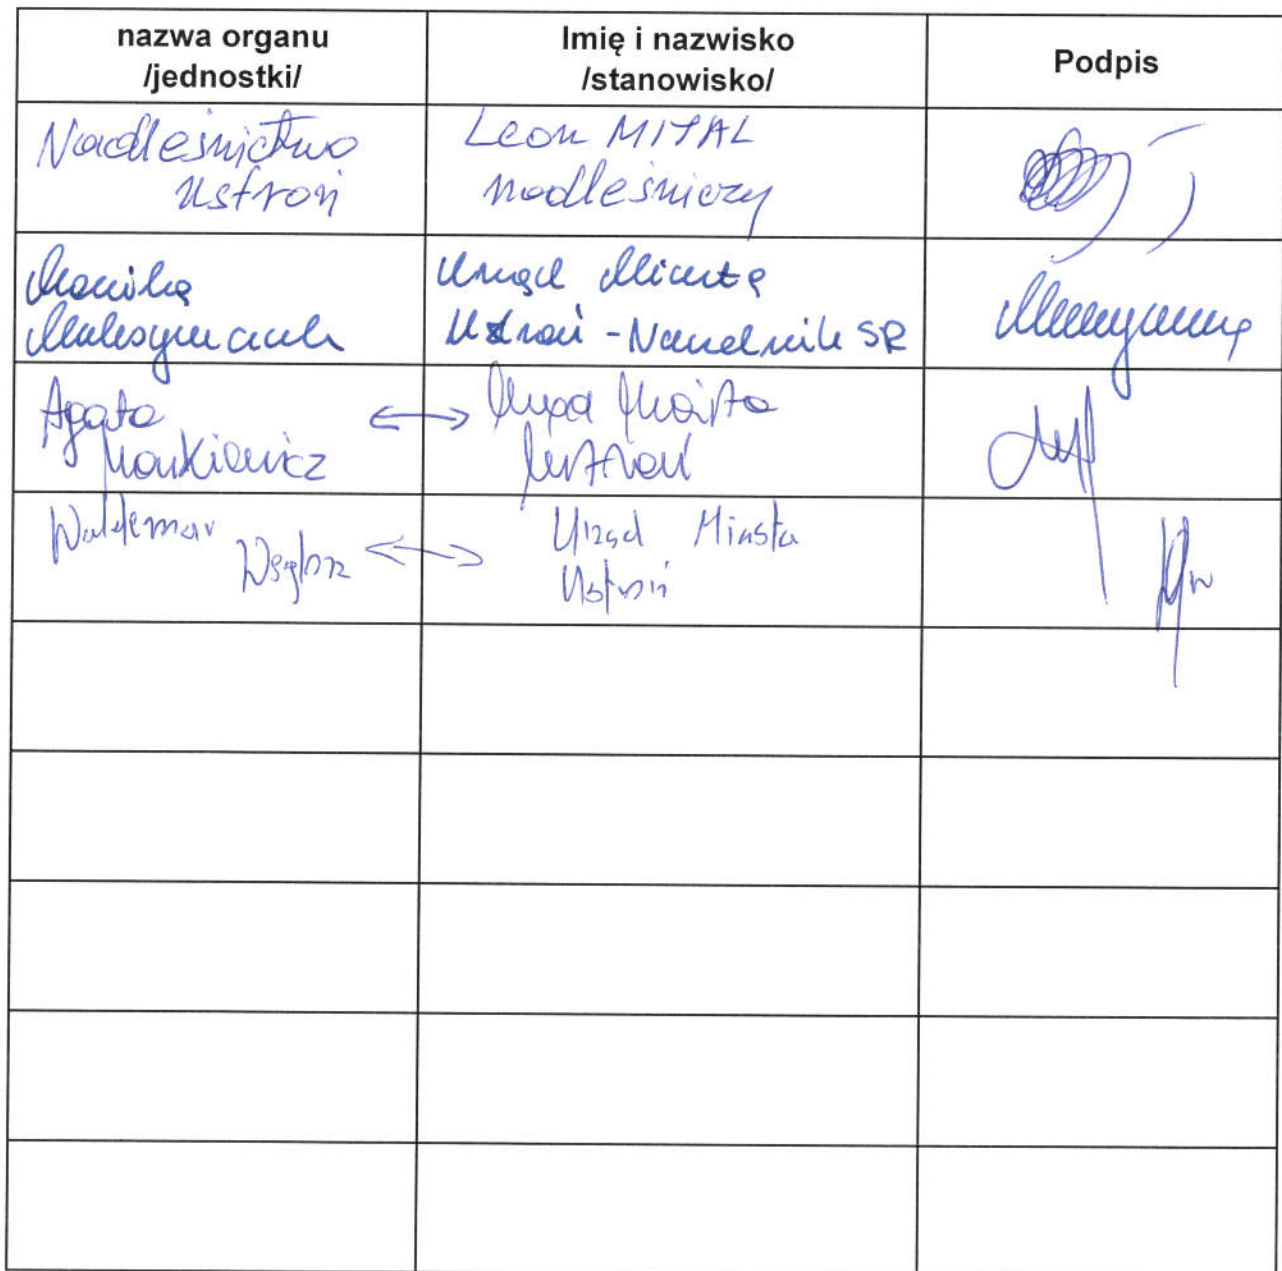 nazwa organu
/jednostki/
Imię i nazwisko
/stanowisko/
Podpis
Nadleśnictwo
Ustroń
Leon MITAL
nadleśniczy
Monika
Maksymczak
Urząd Miasta
Ustroń - Naczelnik SR
Agata
Mankiewicz
Urząd Miasta
Ustroń
Waldemar
Urząd Miasta
Ustroń